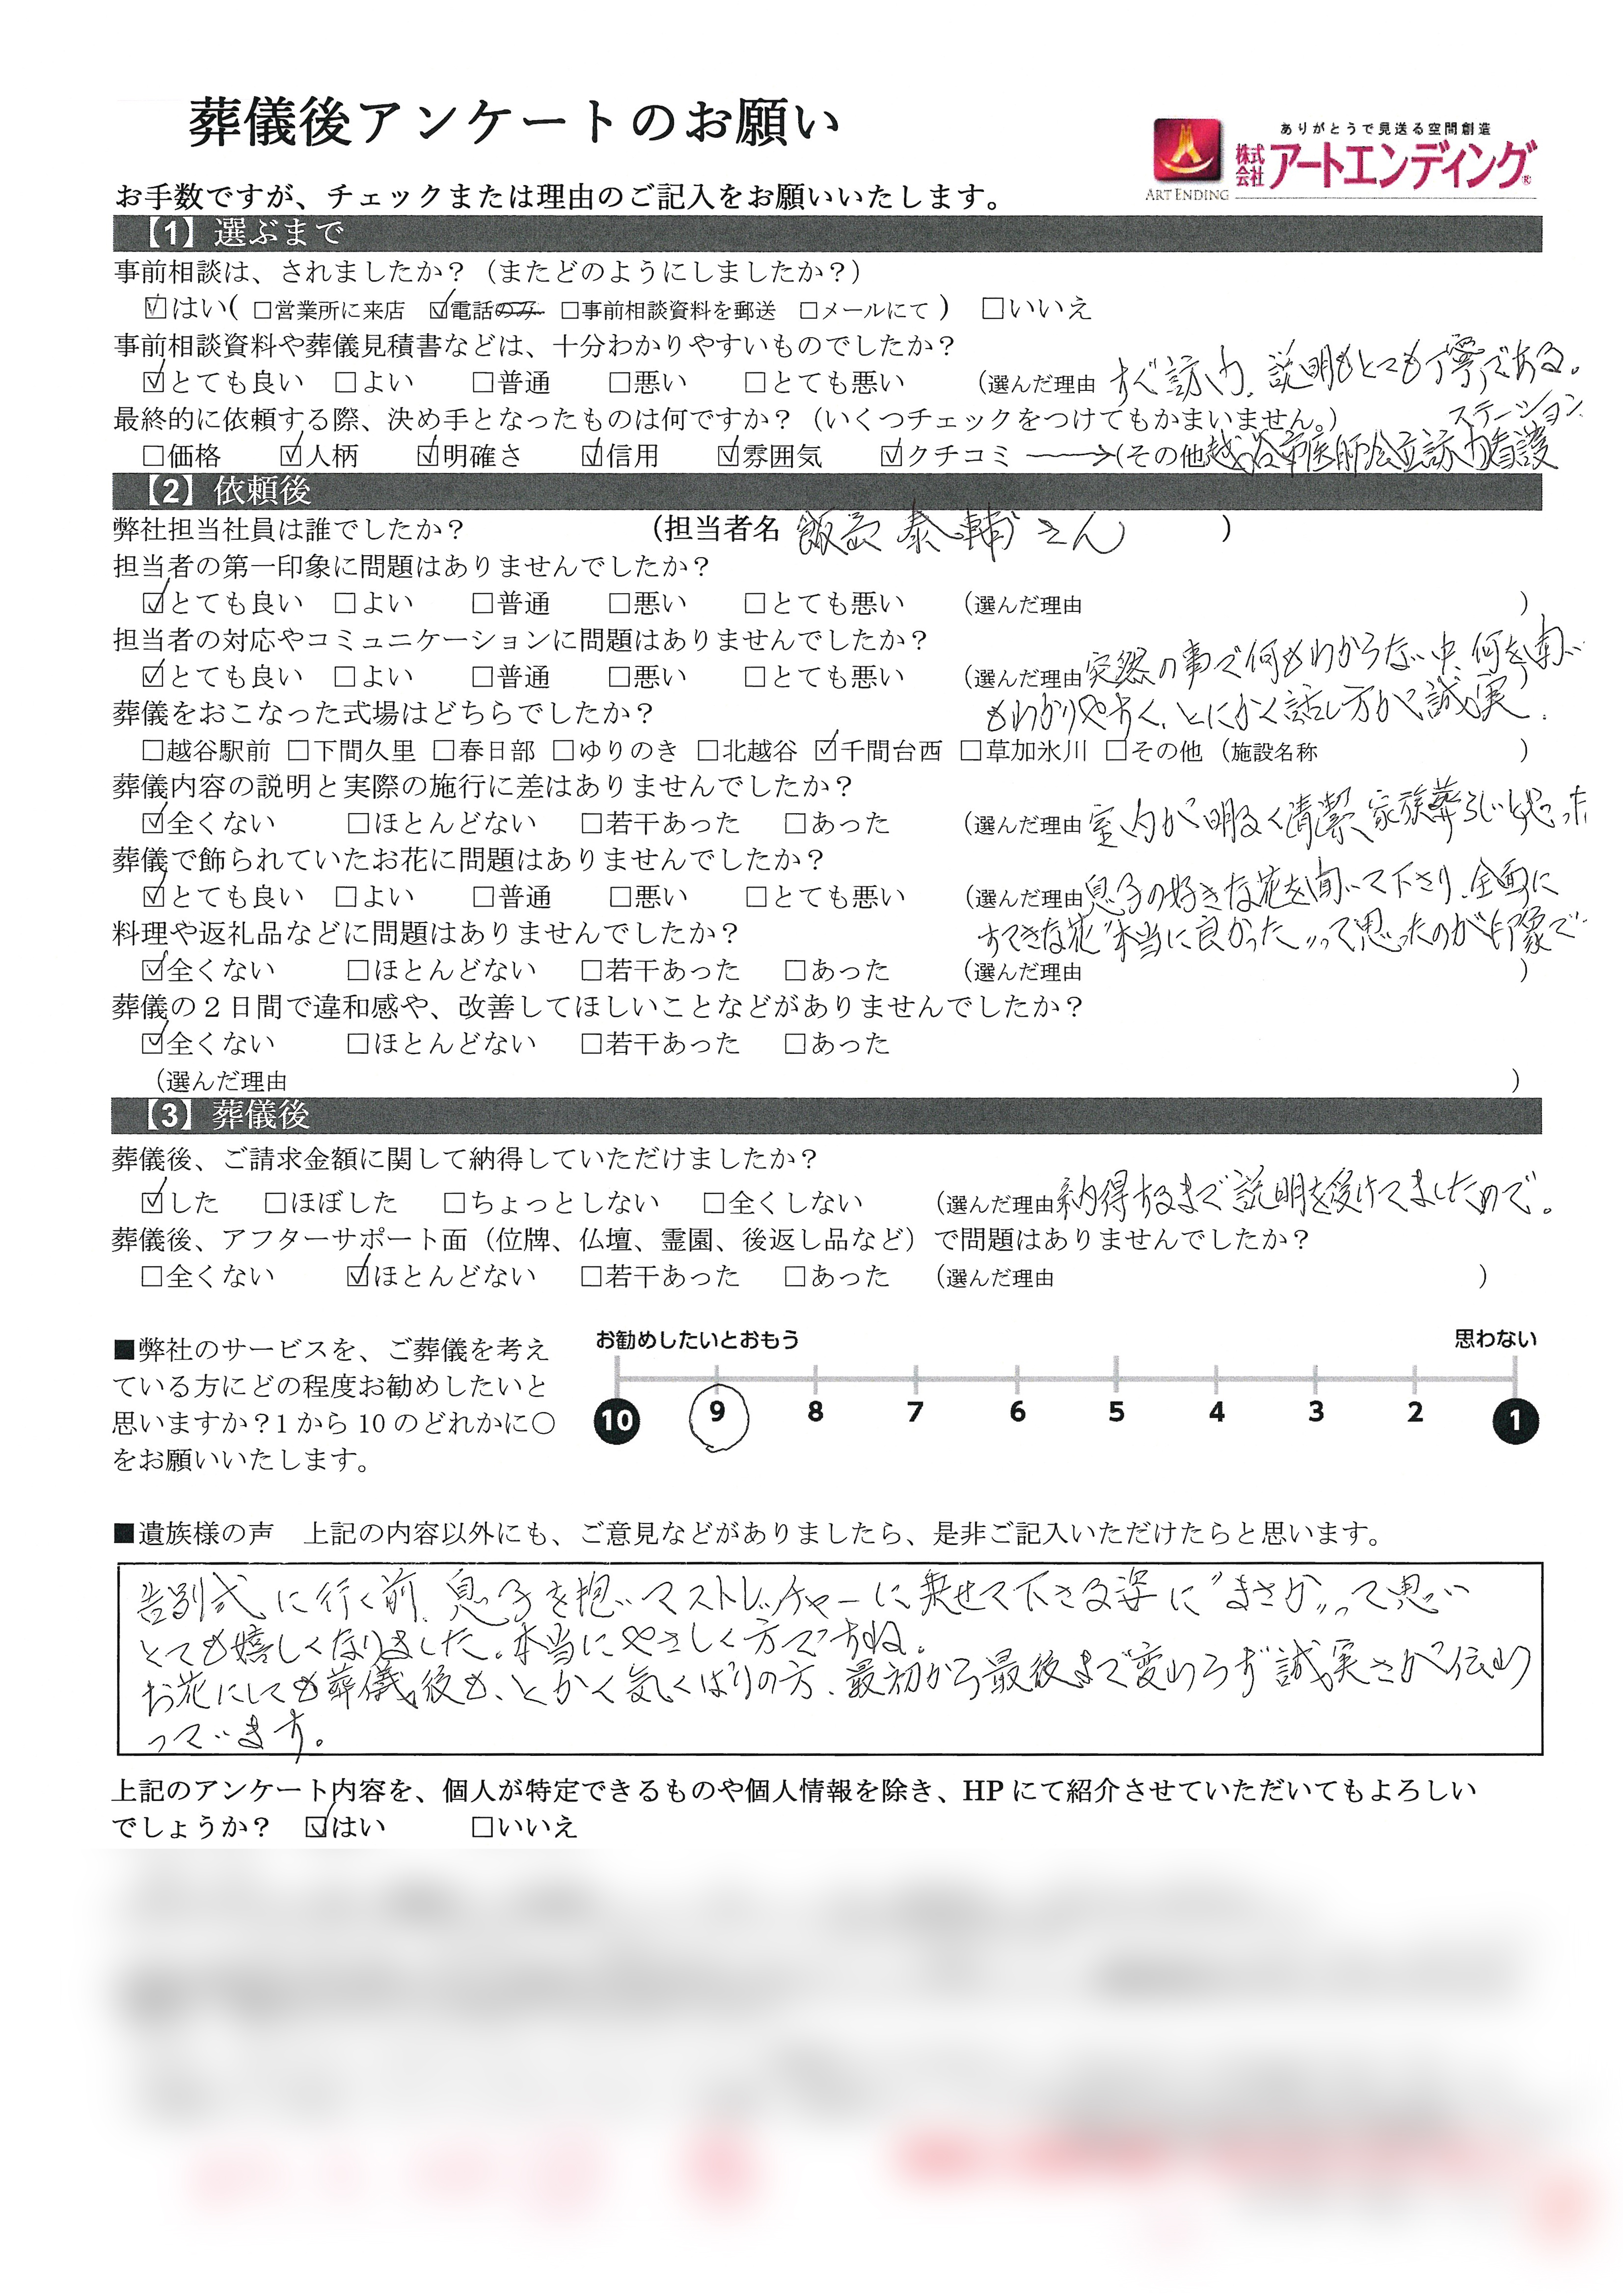 葬儀後アンケートのお願い
ありがとうで見送る空間創造
株式会社アートエンディング®
ART ENDING
お手数ですが、チェックまたは理由のご記入をお願いいたします。
【1】選ぶまで
事前相談は、されましたか？（またどのようにしましたか？）
☑はい( □営業所に来店 ☑電話のみ □事前相談資料を郵送 □メールにて ) □いいえ
事前相談資料や葬儀見積書などは、十分わかりやすいものでしたか？
☑とても良い □よい □普通 □悪い □とても悪い （選んだ理由 すぐ訪わ、説明もとても丁寧である。
最終的に依頼する際、決め手となったものは何ですか？（いくつチェックをつけてもかまいません。）
□価格 ☑人柄 ☑明確さ ☑信用 ☑雰囲気 ☑クチコミ →（その他 越谷市医師会立訪問看護ステーション
【2】依頼後
弊社担当社員は誰でしたか？ （担当者名 泰輔さん ）
担当者の第一印象に問題はありませんでしたか？
☑とても良い □よい □普通 □悪い □とても悪い （選んだ理由 ）
担当者の対応やコミュニケーションに問題はありませんでしたか？
☑とても良い □よい □普通 □悪い □とても悪い （選んだ理由 突然の事で何もわからない中、何を聞い ）
もわかりやすく、とにかく話し方が誠実.
葬儀をおこなった式場はどちらでしたか？
□越谷駅前 □下間久里 □春日部 □ゆりのき □北越谷 ☑千間台西 □草加氷川 □その他（施設名称 ）
葬儀内容の説明と実際の施行に差はありませんでしたか？
☑全くない □ほとんどない □若干あった □あった （選んだ理由 室内が明るく清潔、家族葬らしいと思った
葬儀で飾られていたお花に問題はありませんでしたか？
☑とても良い □よい □普通 □悪い □とても悪い （選んだ理由 息子の好きな花を聞いて下さり、全面に
すてきな花〝本当に良かった〟って思ったのが印象で
料理や返礼品などに問題はありませんでしたか？
☑全くない □ほとんどない □若干あった □あった （選んだ理由 ）
葬儀の２日間で違和感や、改善してほしいことなどがありませんでしたか？
☑全くない □ほとんどない □若干あった □あった
（選んだ理由 ）
【3】葬儀後
葬儀後、ご請求金額に関して納得していただけましたか？
☑した □ほぼした □ちょっとしない □全くしない （選んだ理由 納得するまで説明を受けてましたので。
葬儀後、アフターサポート面（位牌、仏壇、霊園、後返し品など）で問題はありませんでしたか？
□全くない ☑ほとんどない □若干あった □あった （選んだ理由 ）
■弊社のサービスを、ご葬儀を考え
ている方にどの程度お勧めしたいと
思いますか？1 から 10 のどれかに〇
をお願いいたします。
お勧めしたいとおもう 思わない
10 9 8 7 6 5 4 3 2 1
■遺族様の声 上記の内容以外にも、ご意見などがありましたら、是非ご記入いただけたらと思います。
告別式に行く前、息子を抱いてストレッチャーに乗せて下さる姿に〝まさか〟って思い
とても嬉しくなりました。本当にやさしく方ですね。
お花にしても葬儀後も、とかく気くばりの方、最初から最後まで変わらず誠実さが伝わ
っています。
上記のアンケート内容を、個人が特定できるものや個人情報を除き、HP にて紹介させていただいてもよろしい
でしょうか？ ☑はい □いいえ